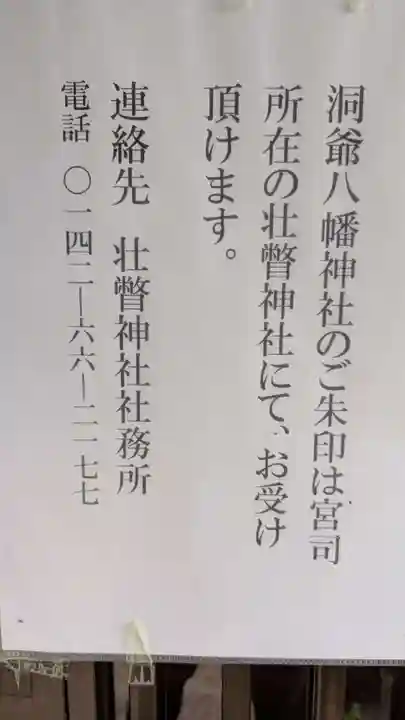 洞爺八幡神社のご朱印は宮司
所在の壮瞥神社にて、お受け
頂けます。
連絡先　壮瞥神社社務所
電話　〇一四二ー六六ー二一七七